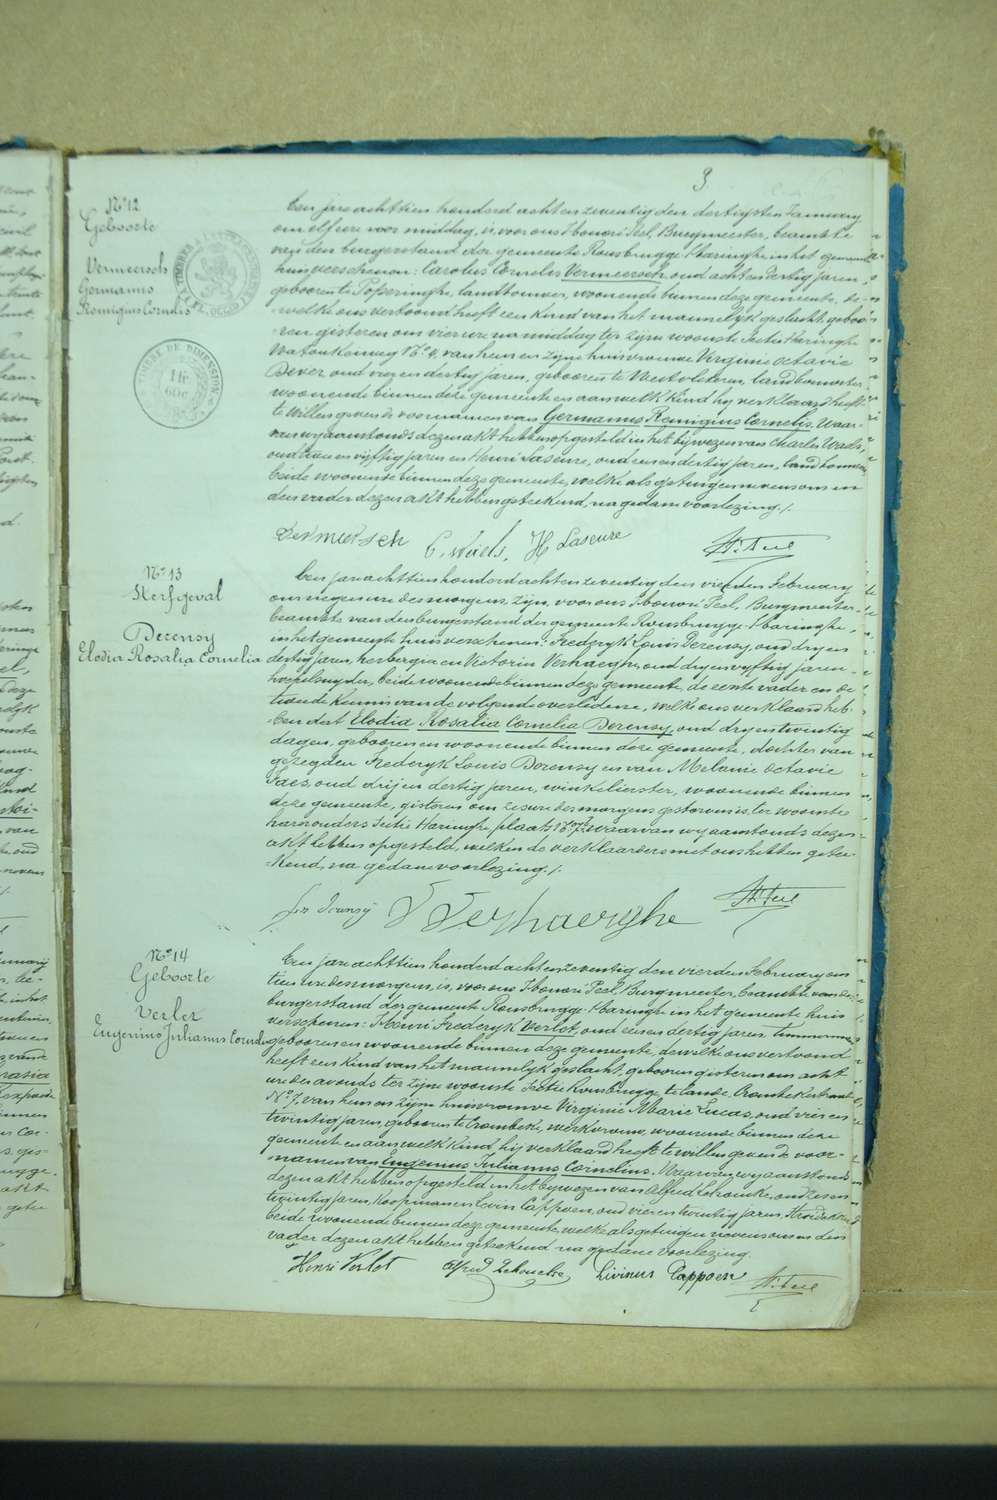 3
N° 12
Geboorte
Vermeersch
Germanus
Remigius Cornelis
TIMBRE DE DIMENSION
1 fr
60c
Een jare achttien honderd acht en zeventig den dertigsten January
om elf ure voor middag, is, voor ons Honoré Peel, Burgmeester, beambte
van den burgerstand der gemeente Rousbrugge-Haringhe in het gemeente
huis verschenen: Carolus Cornelis Vermeersch oud acht en dertig jaren,
geboren te Poperinghe, landbouwer, woonende binnen deze gemeente, de-
welke ons vertoond heeft een kind van het mannelyk geslacht, geboo-
ren gisteren om vier ure na middag ter zijne woonste sectie Haringhe
N° 9, van hem en zijne huisvrouwe Virginie Octavie
Dever oud en dertig jaren, geboren te Westvleteren, landbouwster
woonende binnen deze gemeente en aan welk kind hij verklaard heeft
te willen geven de voornamen van Germanus Remigius Cornelis. Waar-
van wy aanstonds dezen akt hebben opgesteld in het bijwezen van Charles Waels,
oud en vyftig jaren en Henri Laseure, oud een en dertig jaren, landbouwers
beide woonende binnen deze gemeente, welke als getuigen nevens ons en
den vader dezen akt hebben geteekend, na gedane voorlezing./.
Vermeersch C. Waels. H Laseure H. Peel
N° 13
Sterfgeval
Derensy
Elodia Rosalia Cornelia
Een jare achttien honderd acht en zeventig den vierden February
om negen ure des morgens, zijn, voor ons Honoré Peel, Burgmeester,
beambte van den burgerstand der gemeente Rousbrugge-Haringhe,
in het gemeente huis verschenen: Frederyk Louis Derensy, oud dry en
dertig jaren, herbergier en Victorin Verhaeghe, oud dry en vyftig jaren
hoepelsnyder, beide woonende binnen deze gemeente, de eerste vader en de
tweede kennis van de volgende overledene, welke ons verklaard heb-
ben dat Elodia Rosalia Cornelia Derensy, oud dry en twintig
dagen, geboren en woonende binnen deze gemeente, dochter van
gezegden Frederyk Louis Derensy en van Melanie Octavie
Pais, oud drij en dertig jaren, winkelierster, woonende binnen
deze gemeente, gisteren om zes ure des morgens gestorven is, ter woonste
harer ouders sectie Haringhe, plaats waarvan wy aanstonds dezen
akt hebben opgesteld, welken de verklaarders met ons hebben getee-
kend, na gedane voorlezing./.
V Verhaeghe H. Peel
N° 14
Geboorte
Verlet
Eugenius Julianus Cornelius
Een jare achttien honderd acht en zeventig den vierden February om
tien ure des morgens, is, voor ons Honoré Peel, Burgmeester, beambte van den
burgerstand der gemeente Rousbrugge-Haringhe in het gemeente huis
verschenen: Henri Frederyk Verlet, oud een en dertig jaren, timmerman
geboren en woonende binnen deze gemeente, dewelke ons vertoond
heeft een kind van het mannelijk geslacht, geboren gisteren om acht
ure des avonds ter zijne woonste sectie Rousbrugge
N° 7, van hem en zijne huisvrouwe Virginie Marie Lucas, oud vier en
twintig jaren, geboren te Crombeke, werkvrouw, woonende binnen deze
gemeente en aan welk kind hij verklaard heeft te willen geven de voor-
namen van Eugenius Julianus Cornelius. Waarvan wy aanstonds
dezen akt hebben opgesteld in het bijwezen van Alfred Lehoucke, oud zes en
twintig jaren, koopman en Levin Cappoen, oud vier en twintig jaren,
beide woonende binnen deze gemeente, welke als getuigen nevens ons en den
vader dezen akt hebben geteekend na gedane voorlezing.
Henri Verlet Alfred Lehoucke Livinus Cappoen H. Peel